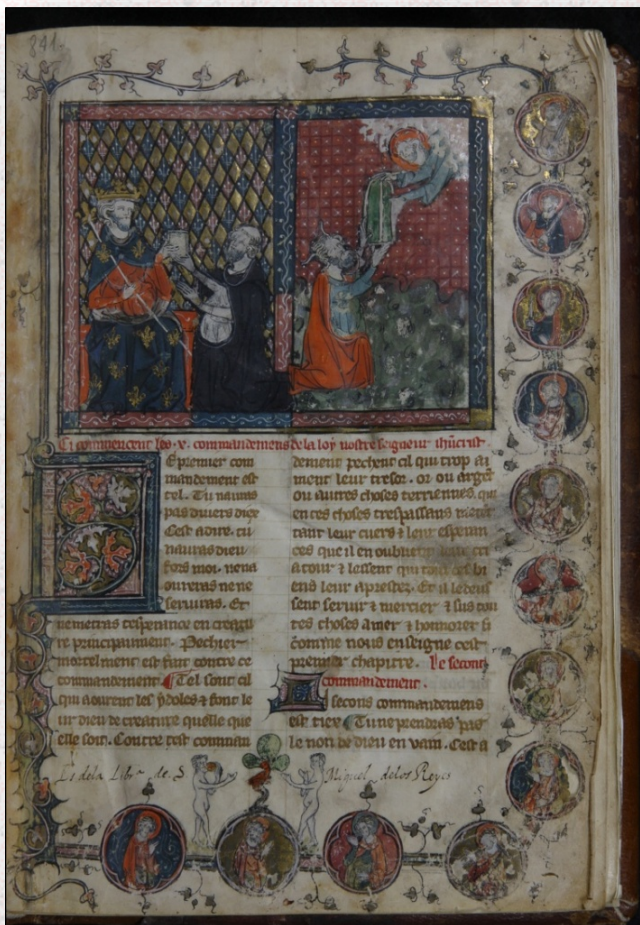 841-
Ci commencent les .x. commandemens de la loy nostre seigneur ihucrist.
Le premier com
mandement est
tel. Tu nauras
pas divers diex
Cest adire. tu
nauras dieu
fors moi. nena
oureras ne ne
serviras. Et
ne metras tesperance en creatu
re principaument. Pechier
mortelment est fait contre ce
commandement. Tel sont cil
qui aourent les ydoles & font le
ur dieu de creature quelle que
elle soit. Contre cest comman
dement pechent cil qui trop ai
ment leur tresor. or ou argent
ou autres choses terriennes. qui
en ces choses trespassans metent
tant leur cuers & leur esperan
ces que il en oublient leur cri
atour & lessent qui touz ces bi
ens leur a prestez. Et il le deus
sent servir & mercier & sus tou
tes choses amer & honnorer si
comme nous enseigne cest
premier chapitre. Le second
commandement.
Li secons commandemens
est tiex Tu ne prendras pas
le non de dieu en vain. Cest a
Es dela Libra de S Miguel delos Reyes